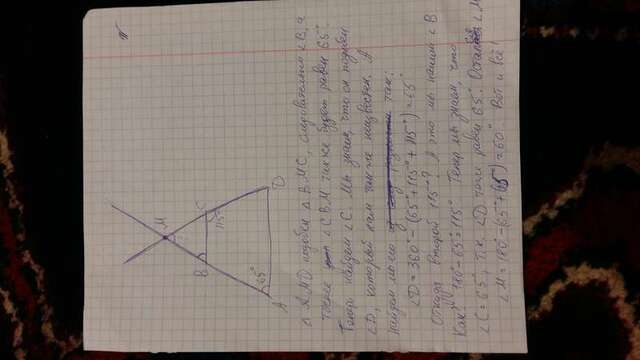 M
B
C
115°
65°
A
D
Δ AMD подобен Δ BMC, следовательно ∠B, а
также ∠CBM также будет равен 65°.
Теперь найдём ∠C. Мы знаем, что он подобен
∠D, который нам также неизвестен. А
найдём мы его так:
∠D = 360° - (65° + 115° + 115°) = 65°
Откуда второй 115°? А это мы нашли ∠B
Как? 180° - 65° = 115° Теперь мы знаем, что
∠C = 65°, т.к. ∠D тоже равен 65°. ∠M
∠M = 180° - (65° + 65°) = 50° Вот и всё!